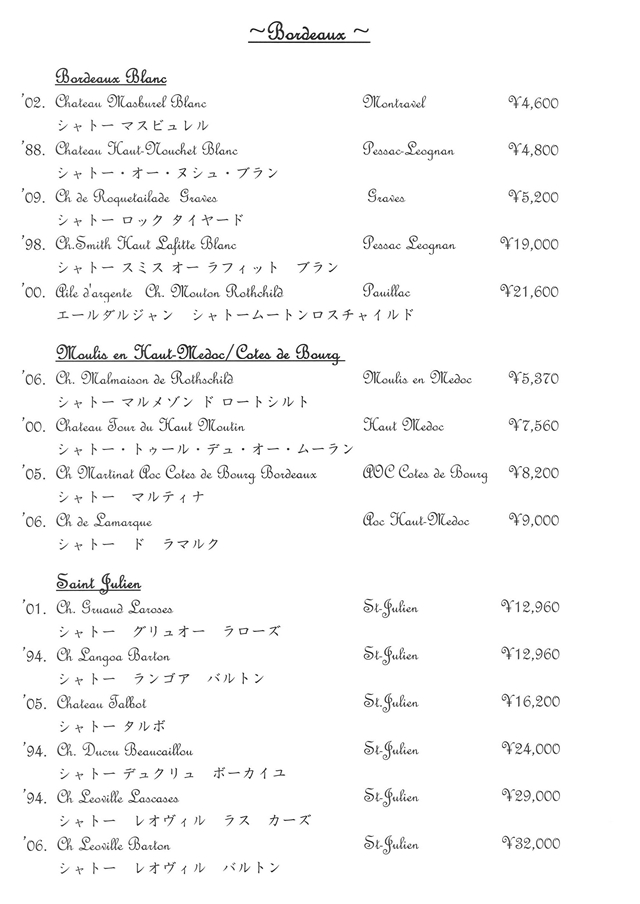 ~Bordeaux ~
Bordeaux Blanc
'02. Chateau Masburel Blanc Montravel ¥4,600
シャトー マスビュレル
'88. Chateau Haut-Nouchet Blanc Pessac-Leognan ¥4,800
シャトー・オー・ヌシュ・ブラン
'09. Ch de Roquetailade Graves Graves ¥5,200
シャトー ロック タイヤード
'98. Ch.Smith Haut Lafitte Blanc Pessac Leognan ¥19,000
シャトー スミス オー ラフィット ブラン
'00. Aile d'argente Ch. Mouton Rothchild Pauillac ¥21,600
エールダルジャン シャトームートンロスチャイルド
Moulis en Haut-Medoc/Cotes de Bourg
'06. Ch. Malmaison de Rothschild Moulis en Medoc ¥5,370
シャトー マルメゾン ド ロートシルト
'00. Chateau Tour du Haut Moutin Haut Medoc ¥7,560
シャトー・トゥール・デュ・オー・ムーラン
'05. Ch Martinat Aoc Cotes de Bourg Bordeaux AOC Cotes de Bourg ¥8,200
シャトー マルティナ
'06. Ch de Lamarque Aoc Haut-Medoc ¥9,000
シャトー ド ラマルク
Saint Julien
'01. Ch. Gruaud Laroses St-Julien ¥12,960
シャトー グリュオー ラローズ
'94. Ch Langoa Barton St-Julien ¥12,960
シャトー ランゴア バルトン
'05. Chateau Talbot St.Julien ¥16,200
シャトー タルボ
'94. Ch. Ducru Beaucaillou St-Julien ¥24,000
シャトー デュクリュ ボーカイユ
'94. Ch Leoville Lascases St-Julien ¥29,000
シャトー レオヴィル ラス カーズ
'06. Ch Leoville Barton St-Julien ¥32,000
シャトー レオヴィル バルトン